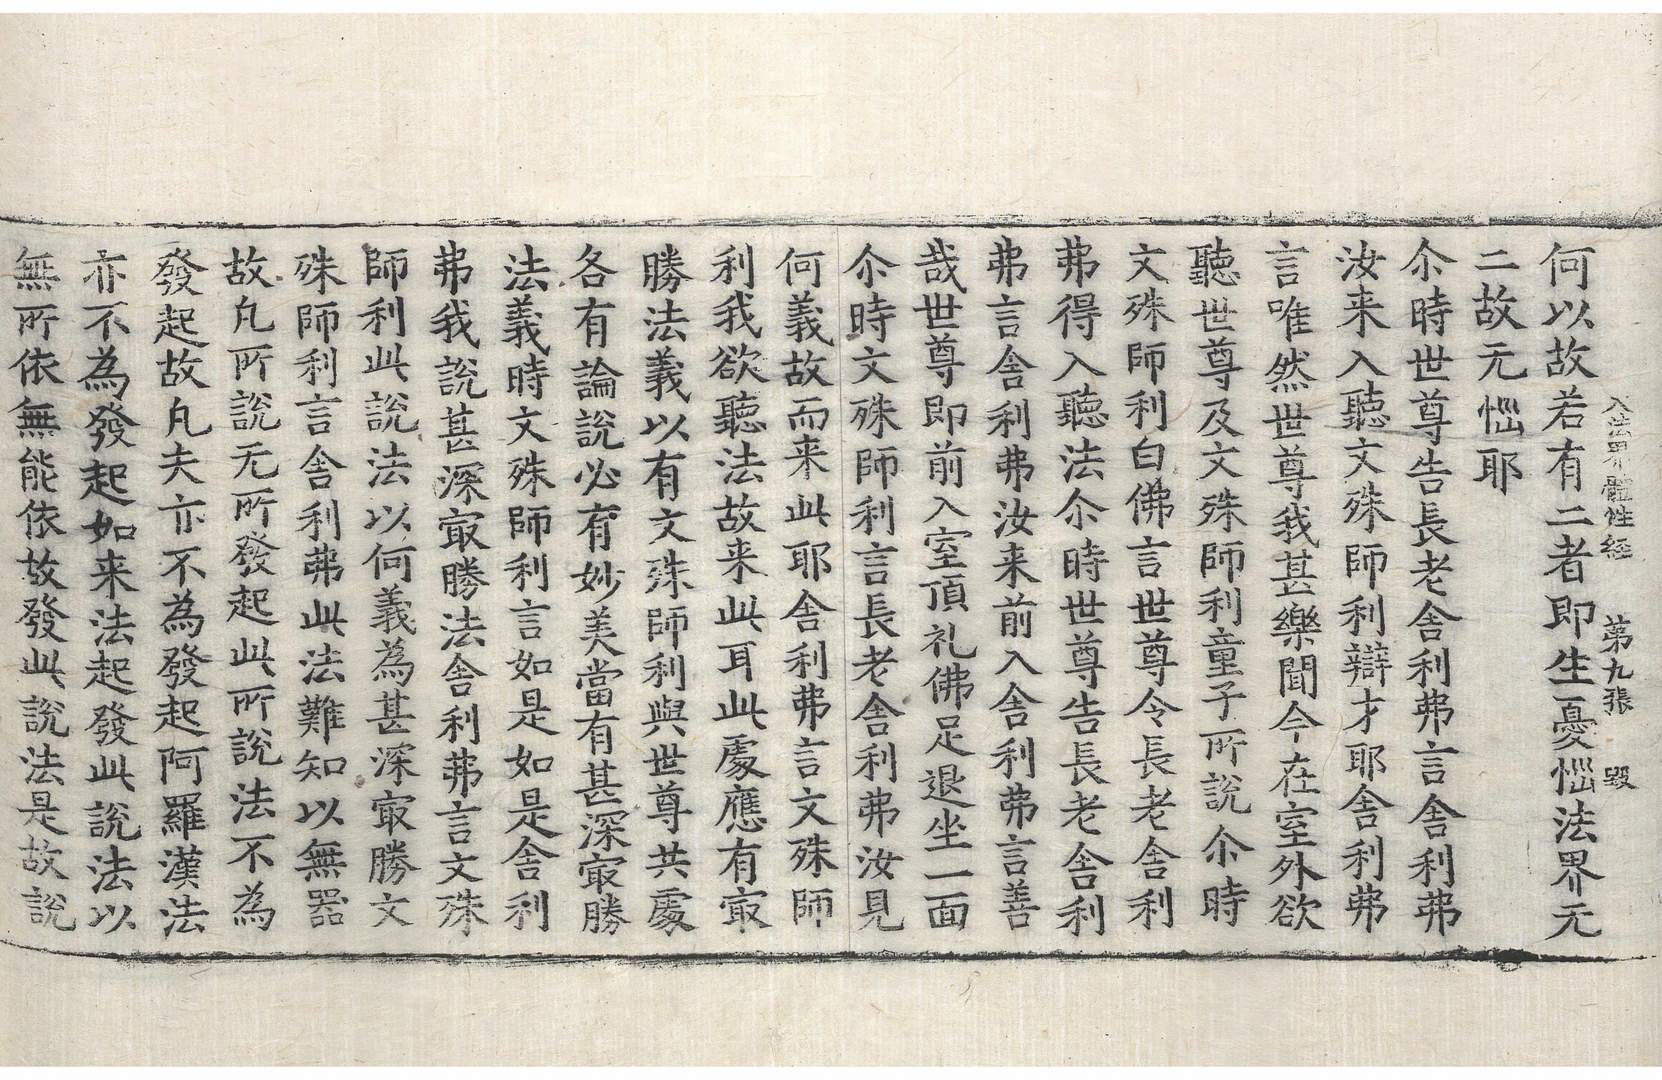 入法界體性經　第九張　毀
何以故若有二者即生憂惱法界无
二故无惱耶
尒時世尊告長老舍利弗言舍利弗
汝来入聽文殊師利辯才耶舍利弗
言唯然世尊我甚樂聞今在室外欲
聽世尊及文殊師利童子所說尒時
文殊師利白佛言世尊令長老舍利
弗得入聽法尒時世尊告長老舍利
弗言舍利弗汝来前入舍利弗言善
哉世尊即前入室頂礼佛足退坐一面
尒時文殊師利言長老舍利弗汝見
何義故而来此耶舍利弗言文殊師
利我欲聽法故来此耳此處應有㝡
勝法義以有文殊師利與世尊共處
各有論說必有妙美當有甚深㝡勝
法義時文殊師利言如是如是舍利
弗我說甚深㝡勝法舍利弗言文殊
師利此說法以何義為甚深㝡勝文
殊師利言舍利弗此法難知以無器
故凡所說无所發起此所說法不為
發起故凡夫亦不為發起阿羅漢法
亦不為發起如来法起發此說法以
無所依無能依故發此說法是故說